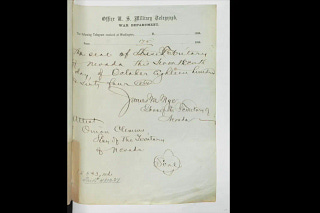 Office U. S. Military Telegraph,
WAR DEPARTMENT.
The following Telegram received at Washington,
From
the seal of the Territory
of Nevada this Seventeenth
day of October Eighteen hundred
and Sixty four
James W. Nye
Governor Territory
Nevada
Attest
Orion Clemens
Secy of the Territory
of Nevada
Seal